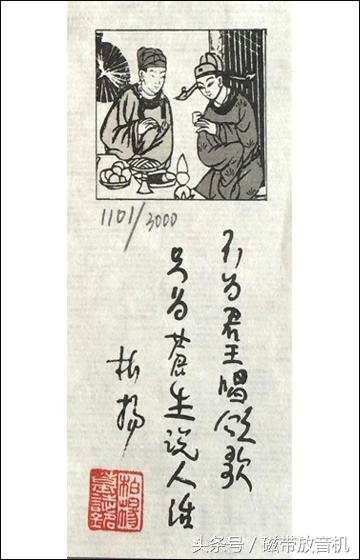 1101/3000
不为君王唱颂歌
只为苍生说人话
柏杨
柏楊
头条号 / 磁带放音机